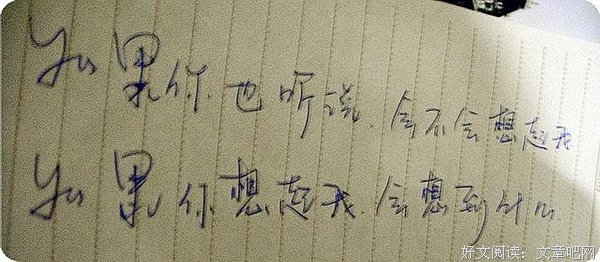 如果你也听说.会不会想起我
如果你想起我.会想到什么
好文阅读：文章吧网